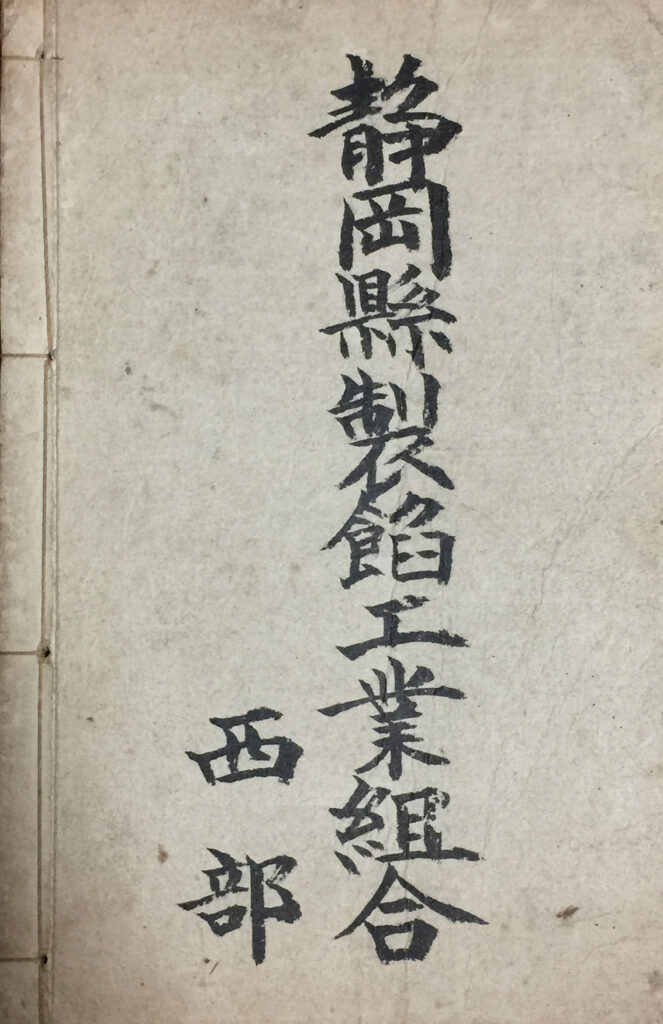 静岡縣製餡工業組合
西部